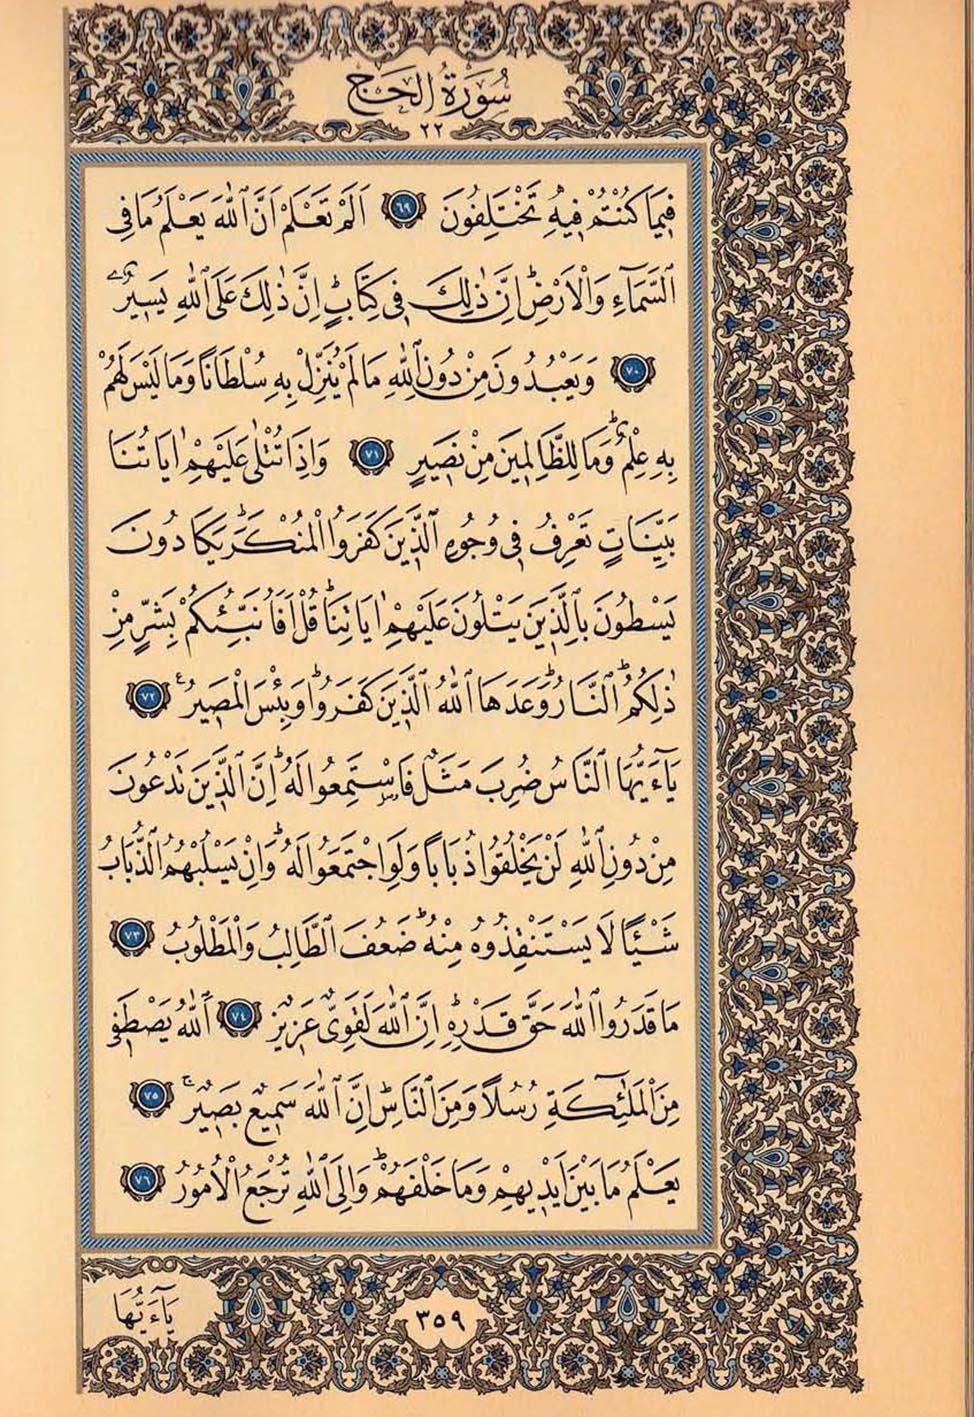 سُورَةُ الْحَجّ
٢٢
فِيمَا كُنْتُمْ فِيهِ تَخْتَلِفُونَ ﴿٦٩﴾ اَلَمْ تَعْلَمْ اَنَّ اللّٰهَ يَعْلَمُ مَا فِي
السَّمَٓاءِ وَالْاَرْضِۜ اِنَّ ذٰلِكَ فِي كِتَابٍۜ اِنَّ ذٰلِكَ عَلَى اللّٰهِ يَسِيرٌ
﴿٧٠﴾ وَيَعْبُدُونَ مِنْ دُونِ اللّٰهِ مَا لَمْ يُنَزِّلْ بِهِ سُلْطَانًا وَمَا لَيْسَ لَهُمْ
بِهِ عِلْمٌۜ وَمَا لِلظَّالِمِينَ مِنْ نَصِيرٍ ﴿٧١﴾ وَاِذَا تُتْلٰى عَلَيْهِمْ اٰيَاتُنَا
بَيِّنَاتٍ تَعْرِفُ فِي وُجُوهِ الَّذِينَ كَفَرُوا الْمُنْكَرَۜ يَكَادُونَ
يَسْطُونَ بِالَّذِينَ يَتْلُونَ عَلَيْهِمْ اٰيَاتِنَاۜ قُلْ اَفَاُنَبِّئُكُمْ بِشَرٍّ مِنْ
ذٰلِكُمُۜ النَّارُۜ وَعَدَهَا اللّٰهُ الَّذِينَ كَفَرُواۜ وَبِئْسَ الْمَصِيرُ ﴿٧٢﴾
يَٓاءَيُّهَا النَّاسُ ضُرِبَ مَثَلٌ فَاسْتَمِعُوا لَهُۜ اِنَّ الَّذِينَ تَدْعُونَ
مِنْ دُونِ اللّٰهِ لَنْ يَخْلُقُوا ذُبَابًا وَلَوِ اجْتَمَعُوا لَهُۜ وَاِنْ يَسْلُبْهُمُ الذُّبَابُ
شَيْـًٔا لَا يَسْتَنْقِذُوهُ مِنْهُۜ ضَعُفَ الطَّالِبُ وَالْمَطْلُوبُ ﴿٧٣﴾
مَا قَدَرُوا اللّٰهَ حَقَّ قَدْرِهِۜ اِنَّ اللّٰهَ لَقَوِيٌّ عَزِيزٌ ﴿٧٤﴾ اَللّٰهُ يَصْطَفِي
مِنَ الْمَلٰٓئِكَةِ رُسُلًا وَمِنَ النَّاسِۜ اِنَّ اللّٰهَ سَمِيعٌ بَصِيرٌۚ ﴿٧٥﴾
يَعْلَمُ مَا بَيْنَ اَيْدِيهِمْ وَمَا خَلْفَهُمْۜ وَاِلَى اللّٰهِ تُرْجَعُ الْاُمُورُ ﴿٧٦﴾
٣٥٩
يَٓاءَيُّهَا